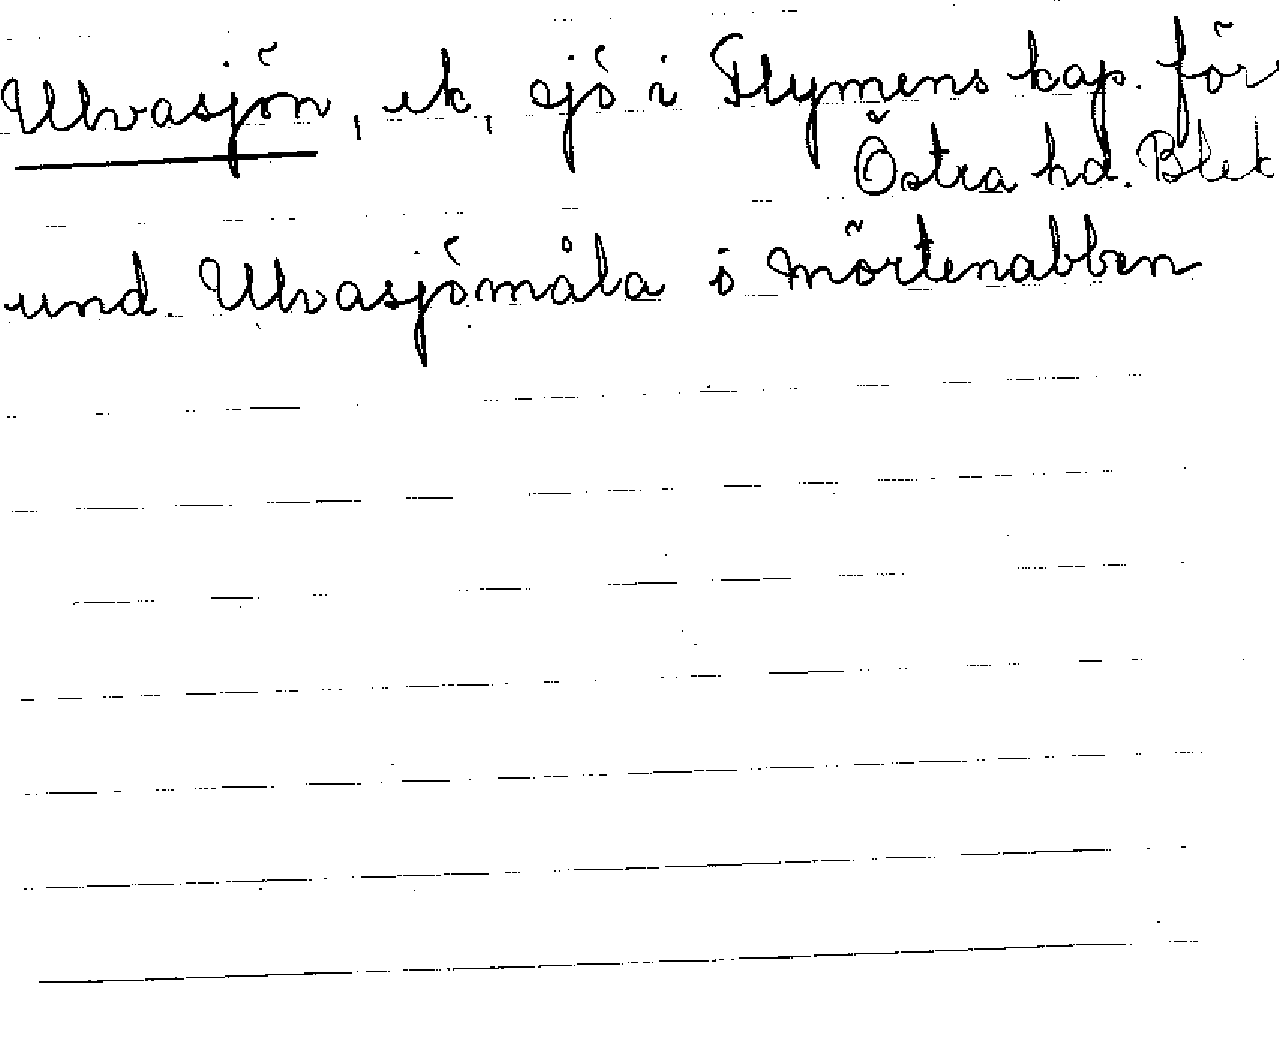 Ulvasjön, ek, sjö i Flymens kap. för
Östra hd. Blek
und Ulvasjömåla o Mörtenabben